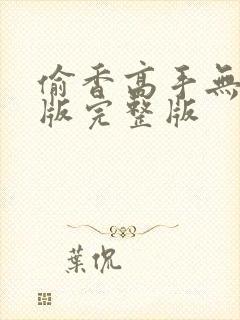 偷香高手無
版完整版
葉侃